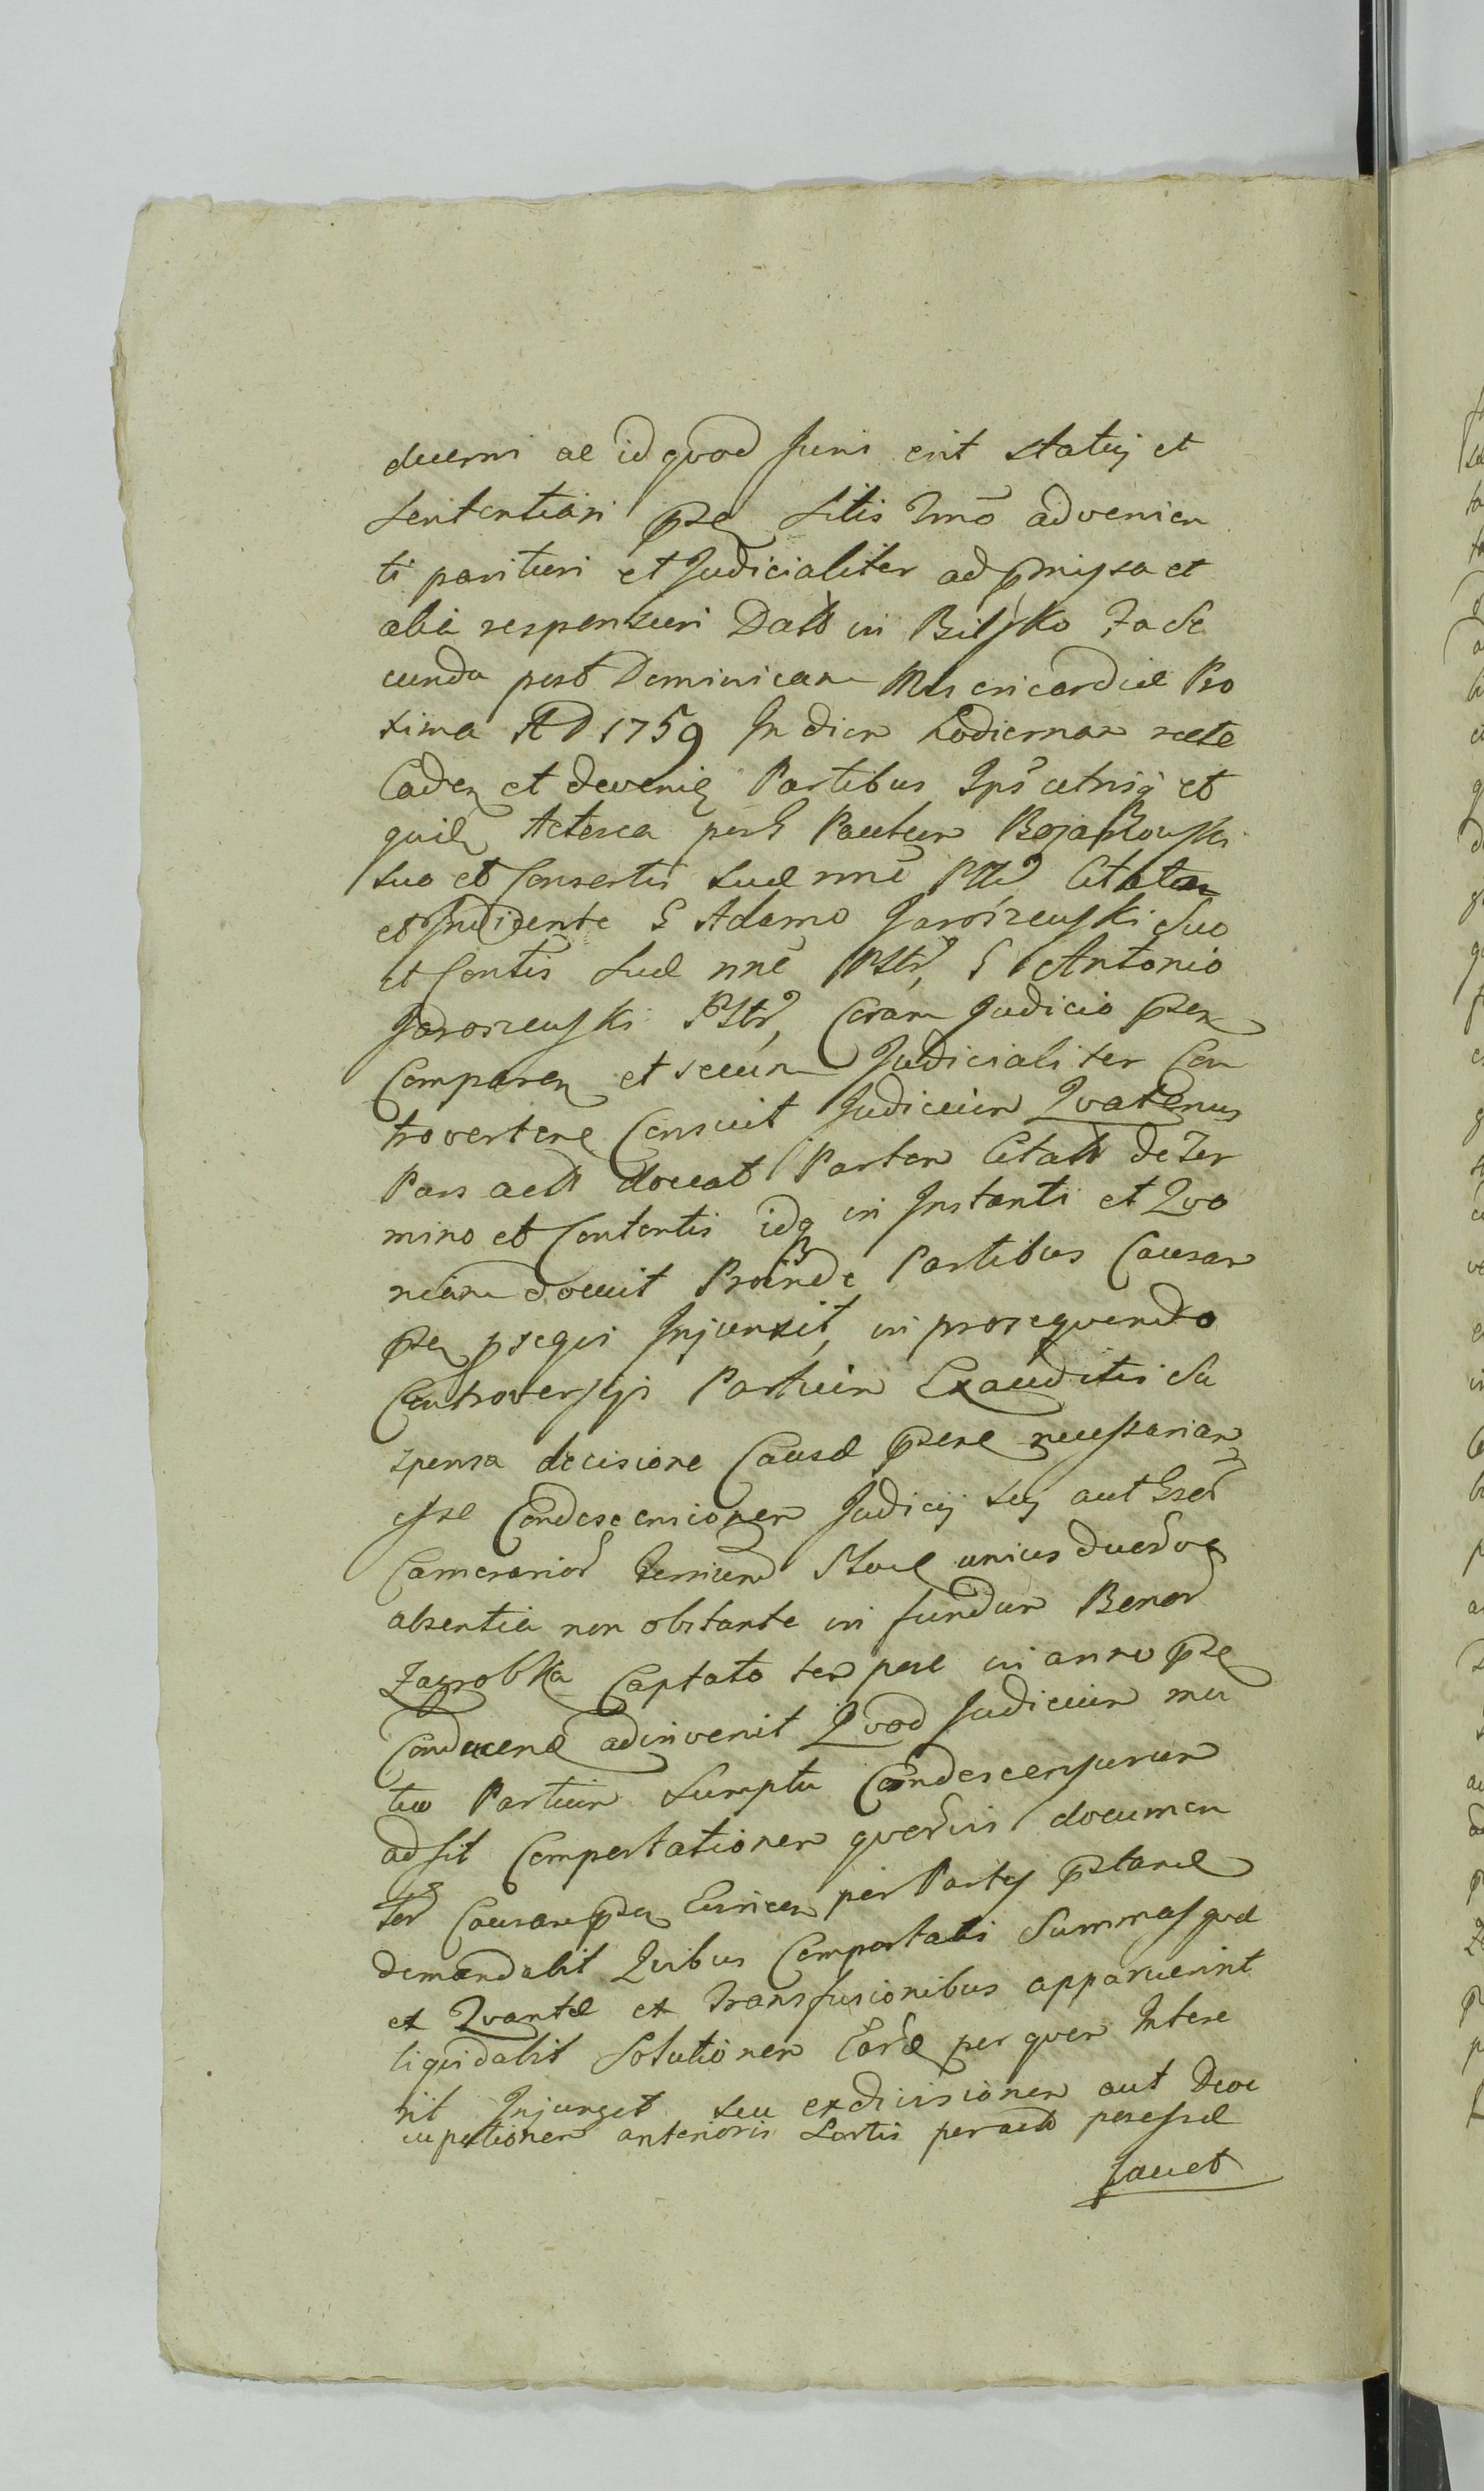 decerni ac id quod Juris erit statuj et
Sententiari pse Litis Tnno advenien
ti parituri et Judicialiter ad pmissa et
alia responsuri Datt in Bilsko Fa Se
cunda post Dominicam Misericordiae Pro
xima AD 1759 In diem hodiernam recte
Caden et devenien Partibus Ips utrisq et
quide Actorea per G Paulum Bojarkowski
Suo et Consortis Suae nne Pltt Citatam
et Incidente G Adamo Jaroszewski Suo
et Contis Suae nne Pltr, G Antonio
Jaroszewski Pltr, Coram Judicio psen
Comparen et secum Judicialiter Con
trovertere Censuit Judicium Quatenus
Pars actt doceat Partem Citatt de Ter
mino et Contentis idq in Instanti et Quo
niam docuit Proinde Partibus Causam
psen psequi Injunxit, in prosequendo
Controversijs Partium Exauditis Su
spensa decisione Causae psene necessariam
esse Condescensionem Judicij sui aut Gsor
Camerarior Terrium Stowe unius duorve
absentia non obstante in fundum Bonor
Zagrobka Captato tempore in anno pse
Conducend adinvenit Quod Judicium mu
tuo Partium Sumptu Condescensurum
adsit Comportationem quorvis documen
tor Causam psen Concern per Partes pstand
demandabit Quibus Comportatis Summas quae
et Quantae ex Transfusionibus apparuerint
liquidabit Solutionem Earde per quem Intere
rit Injunget seu exdivisionem aut Deoc
cupationem anterioris Sortis per actt possessae
Jacet